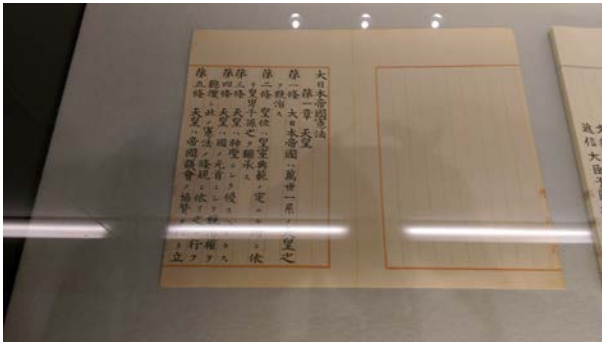 大日本帝國憲法
第一章 天皇
第一條 大日本帝國ハ萬世一系ノ天皇之
ヲ統治ス
第二條 皇位ハ皇室典範ノ定ムル所ニ依
リ皇男子孫之ヲ繼承ス
第三條 天皇ハ神聖ニシテ侵スヘカラス
第四條 天皇ハ國ノ元首ニシテ統治權ヲ
總攬シ此ノ憲法ノ條規ニ依リ之ヲ行フ
第五條 天皇ハ帝國議會ノ協贊ヲ以テ立
遞信大臣子爵